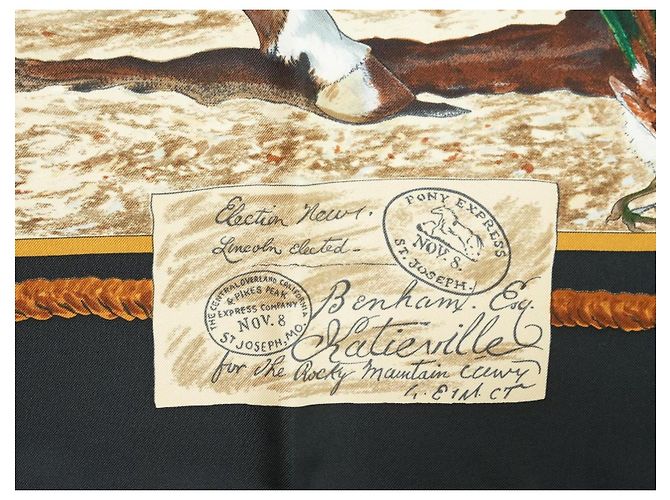 Election News.
Lincoln elected-
PONY EXPRESS
NOV. 8.
ST. JOSEPH.
THE CENTRAL OVERLAND CALIFORNIA
& PIKES PEAK
EXPRESS COMPANY
NOV. 8
ST JOSEPH, MO.
Benham. Esq.
Katieville
for The Rocky Mountain